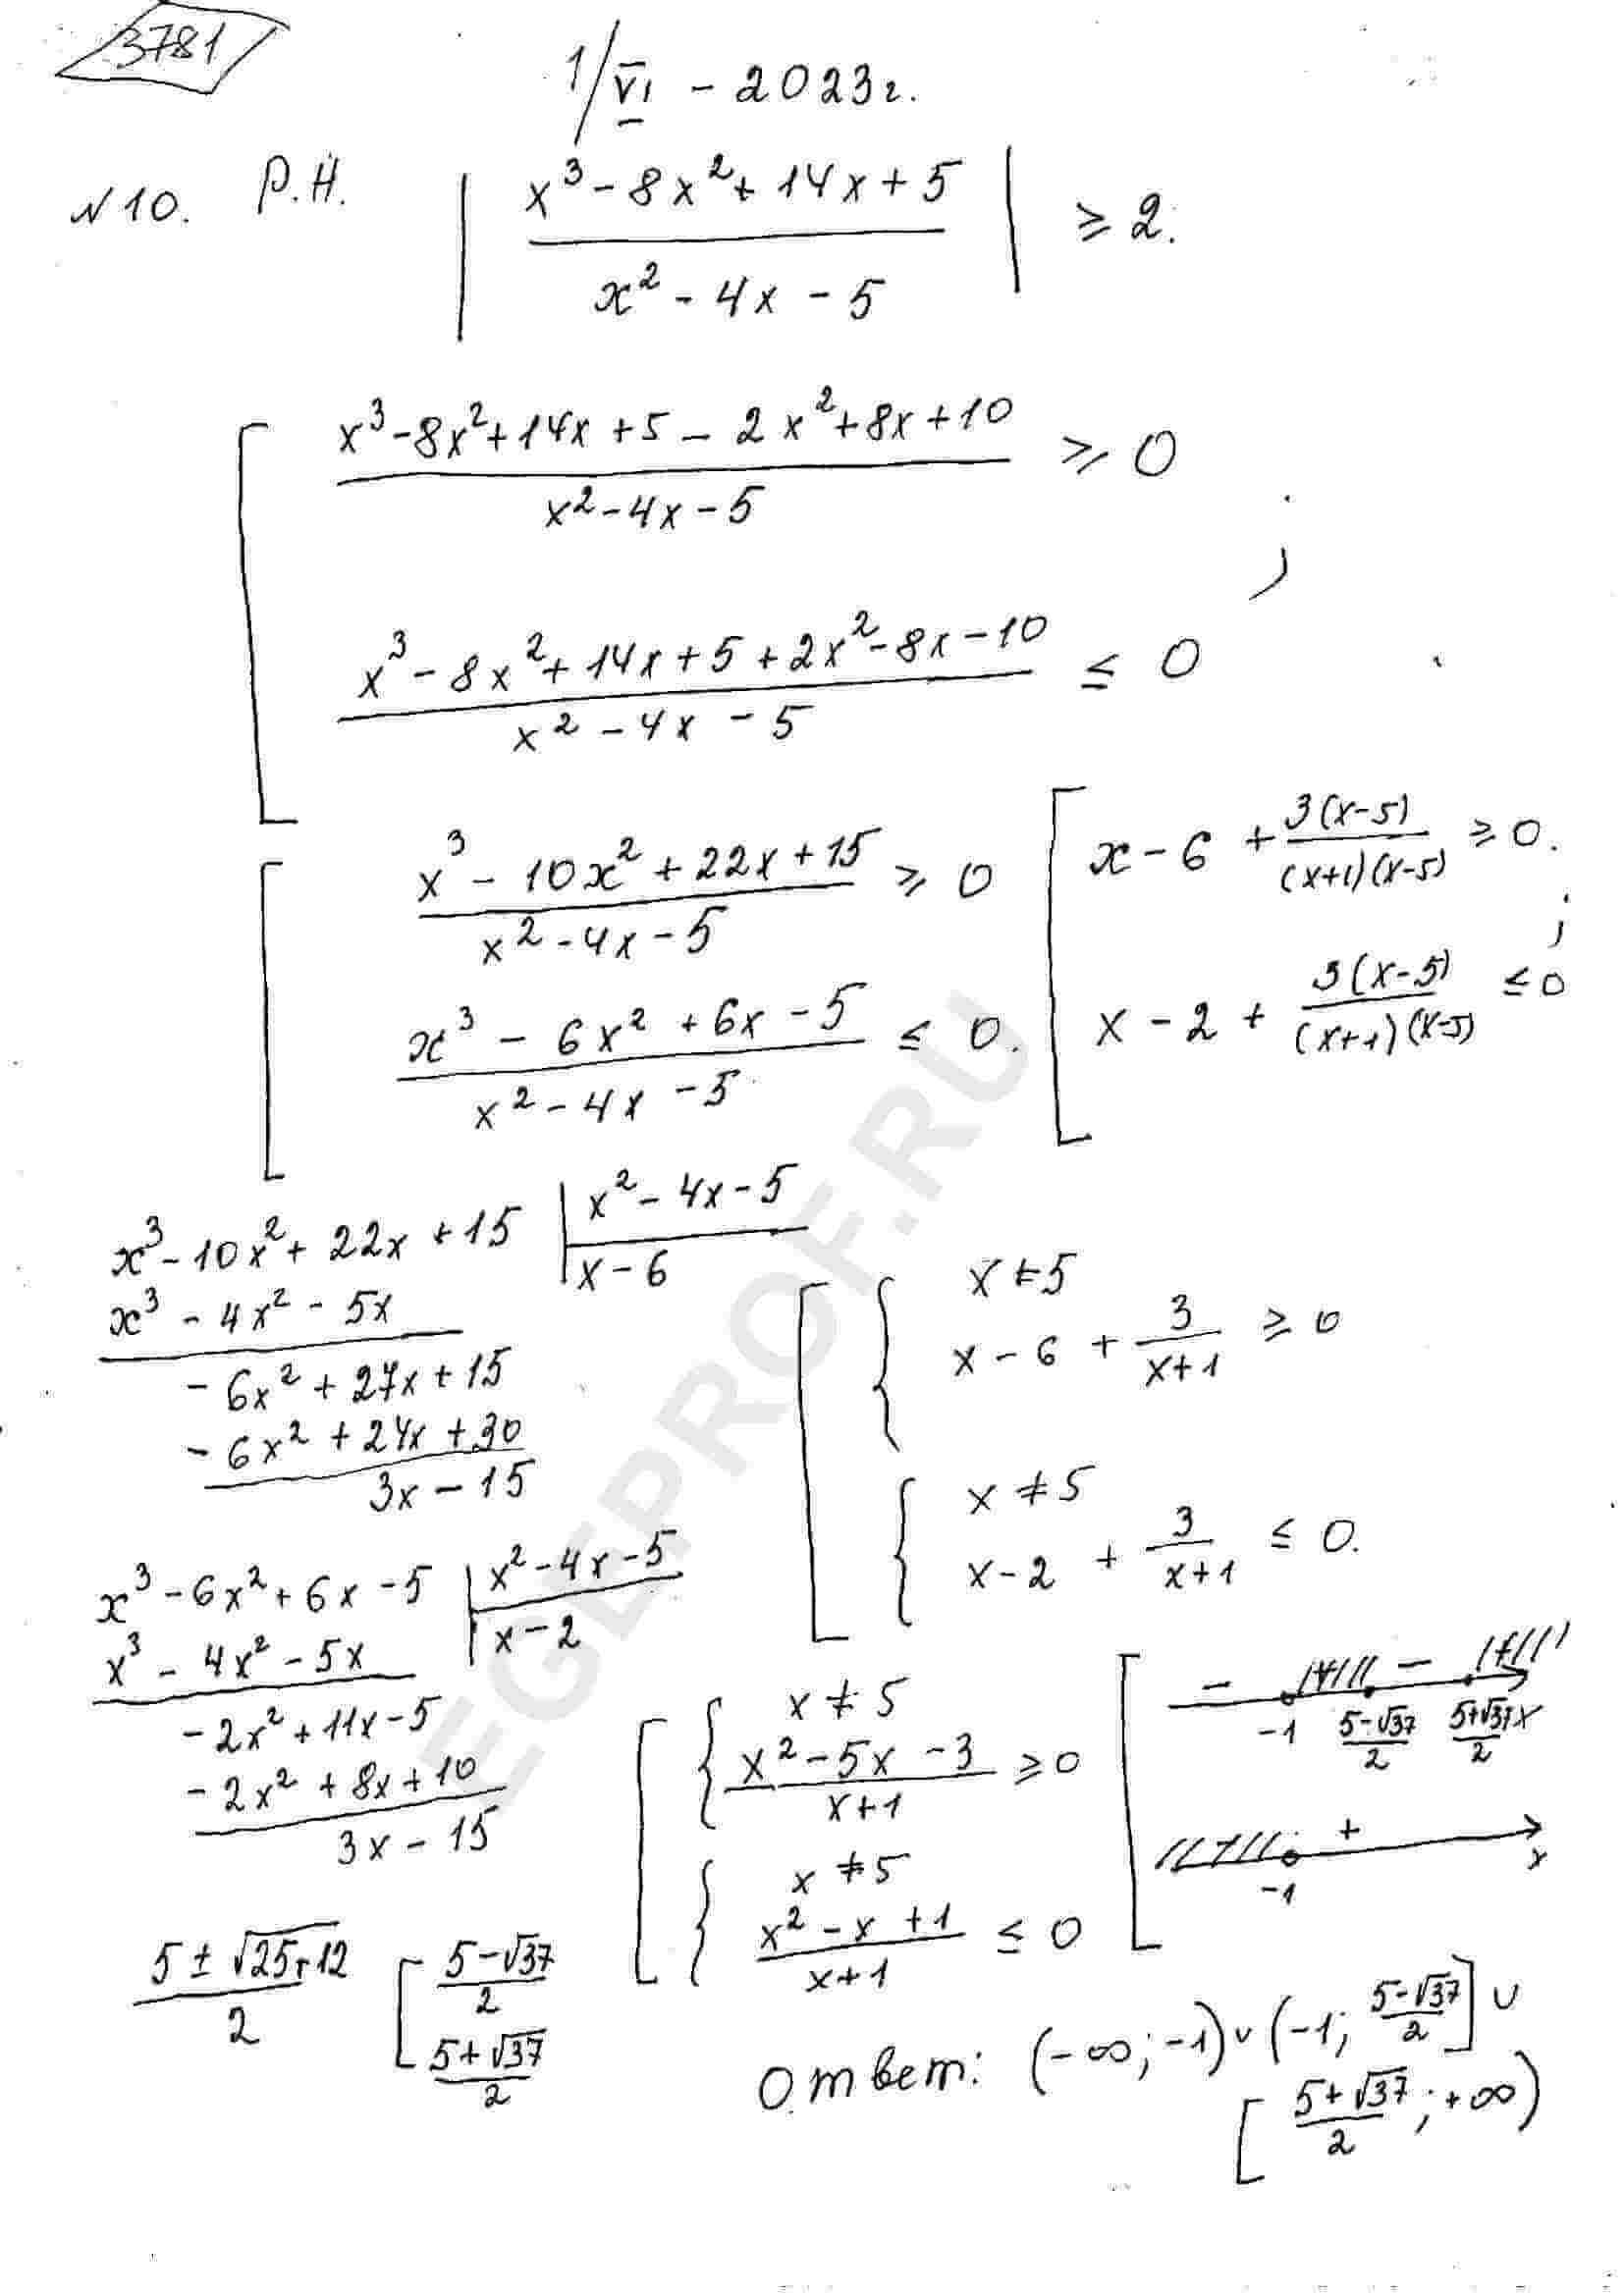 3781
1/VI - 2023г.
№10. Р.Н. | (x³ - 8x² + 14x + 5) / (x² - 4x - 5) | ≥ 2.
[ (x³ - 8x² + 14x + 5 - 2x² + 8x + 10) / (x² - 4x - 5) ≥ 0
;
(x³ - 8x² + 14x + 5 + 2x² - 8x - 10) / (x² - 4x - 5) ≤ 0
[ (x³ - 10x² + 22x + 15) / (x² - 4x - 5) ≥ 0
(x³ - 6x² + 6x - 5) / (x² - 4x - 5) ≤ 0.
[ x - 6 + 3(x-5) / (x+1)(x-5) ≥ 0.
;
x - 2 + 3(x-5) / (x+1)(x-5) ≤ 0
x³ - 10x² + 22x + 15 | x² - 4x - 5
x³ - 4x² - 5x | x - 6
- 6x² + 27x + 15
- 6x² + 24x + 30
3x - 15
[ { x ≠ 5
x - 6 + 3 / (x+1) ≥ 0
{ x ≠ 5
x - 2 + 3 / (x+1) ≤ 0.
x³ - 6x² + 6x - 5 | x² - 4x - 5
x³ - 4x² - 5x | x - 2
- 2x² + 11x - 5
- 2x² + 8x + 10
3x - 15
[ { x ≠ 5
(x² - 5x - 3) / (x+1) ≥ 0
{ x ≠ 5
(x² - x + 1) / (x+1) ≤ 0
[ - + - +
-1 (5-√37)/2 (5+√37)/2 x
- +
-1 x
(5 ± √25+12) / 2 [ (5-√37)/2
(5+√37)/2
Ответ: (-∞; -1) ∪ (-1; (5-√37)/2] ∪
[(5+√37)/2; +∞)
EGEPROF.RU